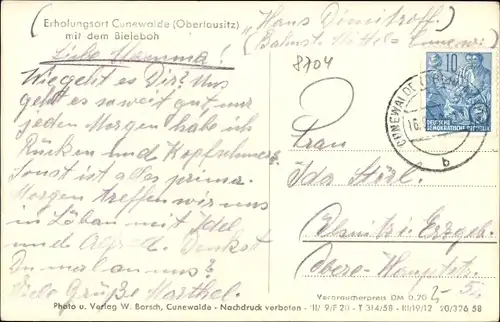 Erholungsort Cunewalde (Oberlausitz)
mit dem Bieleboh
"Haus Dimitroff"
(Bahnst. Mittel = Cunew.)
Liebe Mamma!
Wie geht es Dir? Uns
geht es soweit gut, nur
jeden Morgen habe ich
Rücken und Kopfschmerz.
Sonst ist alles prima.
Morgen treffen wir uns
in Löbau mit
und Denkst
Du mal an uns?
Viele Grüße Marthel.
8704
10
DEUTSCHE
DEMOKRATISCHE REPUBLIK
CUNEWALDE
16
b
Frau
Ida
Oelsnitz i. Erzgeb.
Obere-Hauptstr.
Verbraucherpreis DM 0.20
Photo u. Verlag W. Borsch, Cunewalde - Nachdruck verboten - III/9/F 20 - T 314/58 - III/19/12 20/326 58